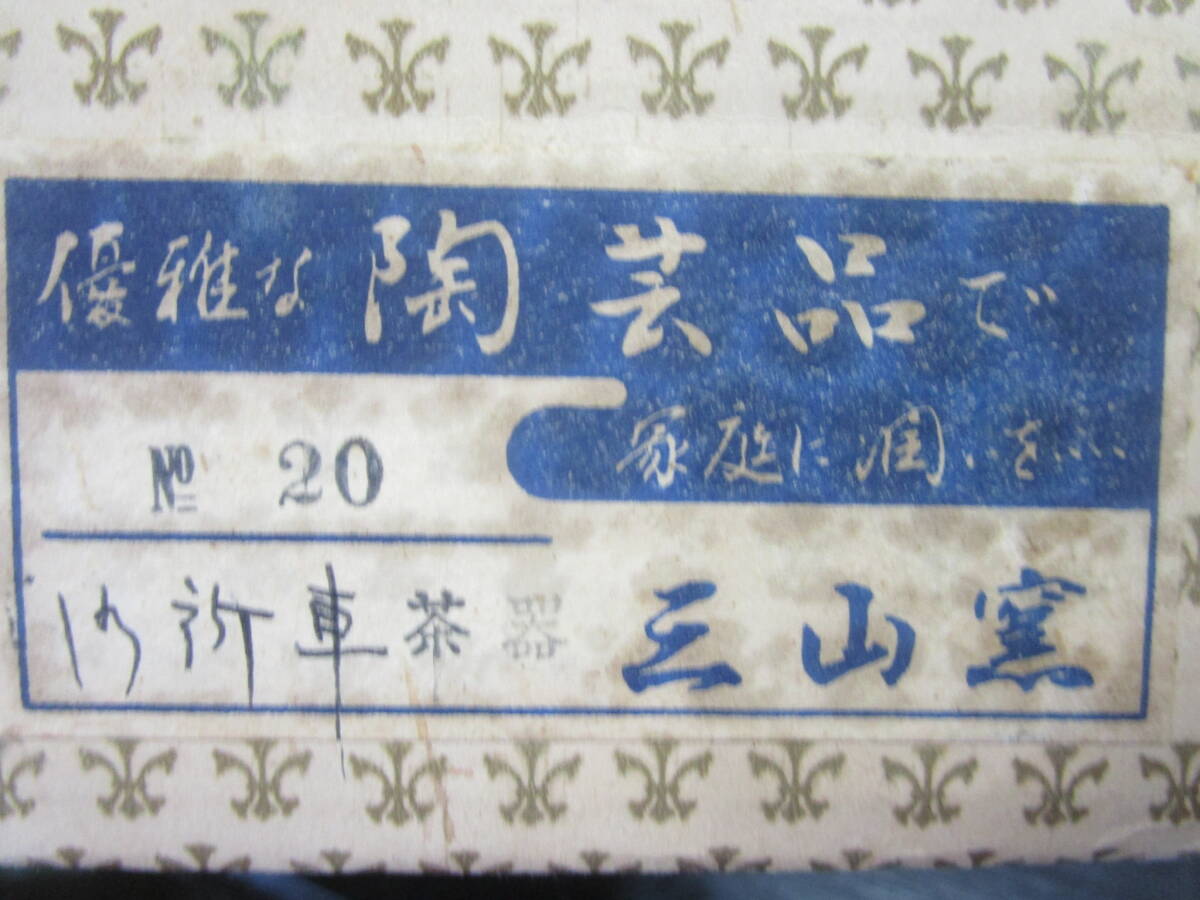 優雅な陶芸品で
家庭に潤いを……
№ 20
御所車茶器
三山窯